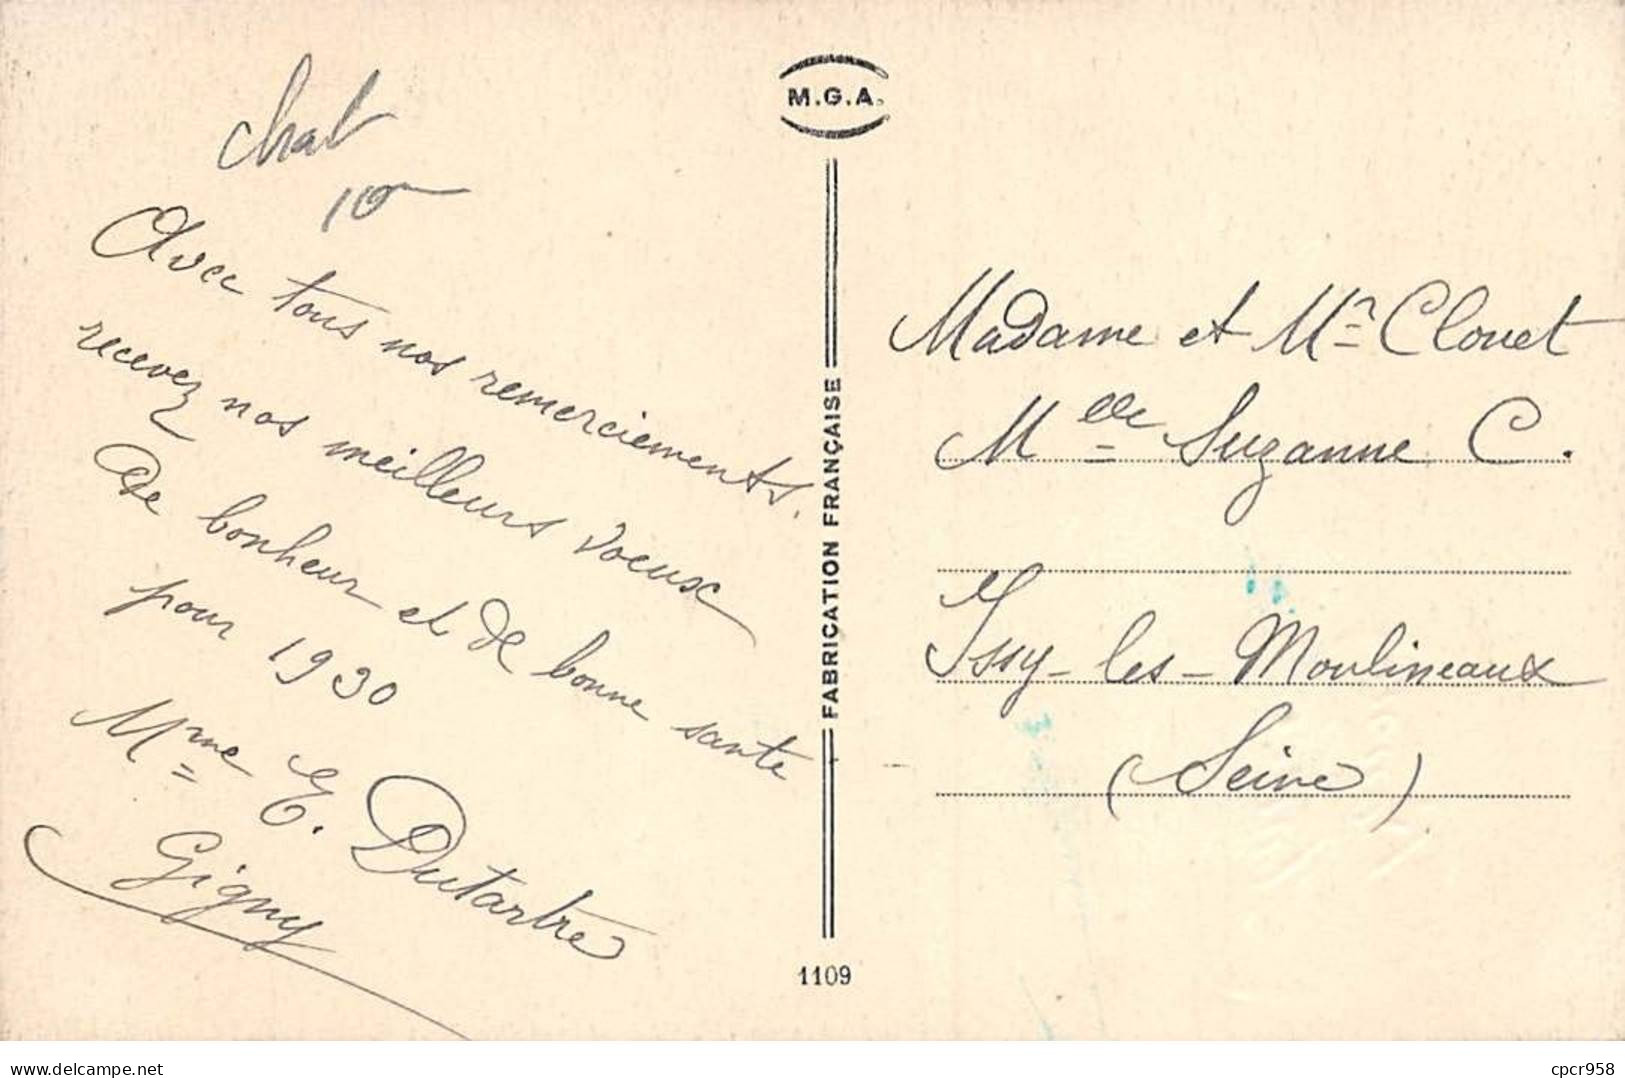 chat
10
M.G.A.
Avec tous nos remerciements.
recevez nos meilleurs voeux
de bonheur et de bonne sante
pour 1930
Mme E. Dutartre
Gigny
FABRICATION FRANÇAISE
1109
Madame et Mr Clouet
Melle Suzanne C.
Issy-les-Moulineaux
(Seine)
www.delcampe.net
cpcr958